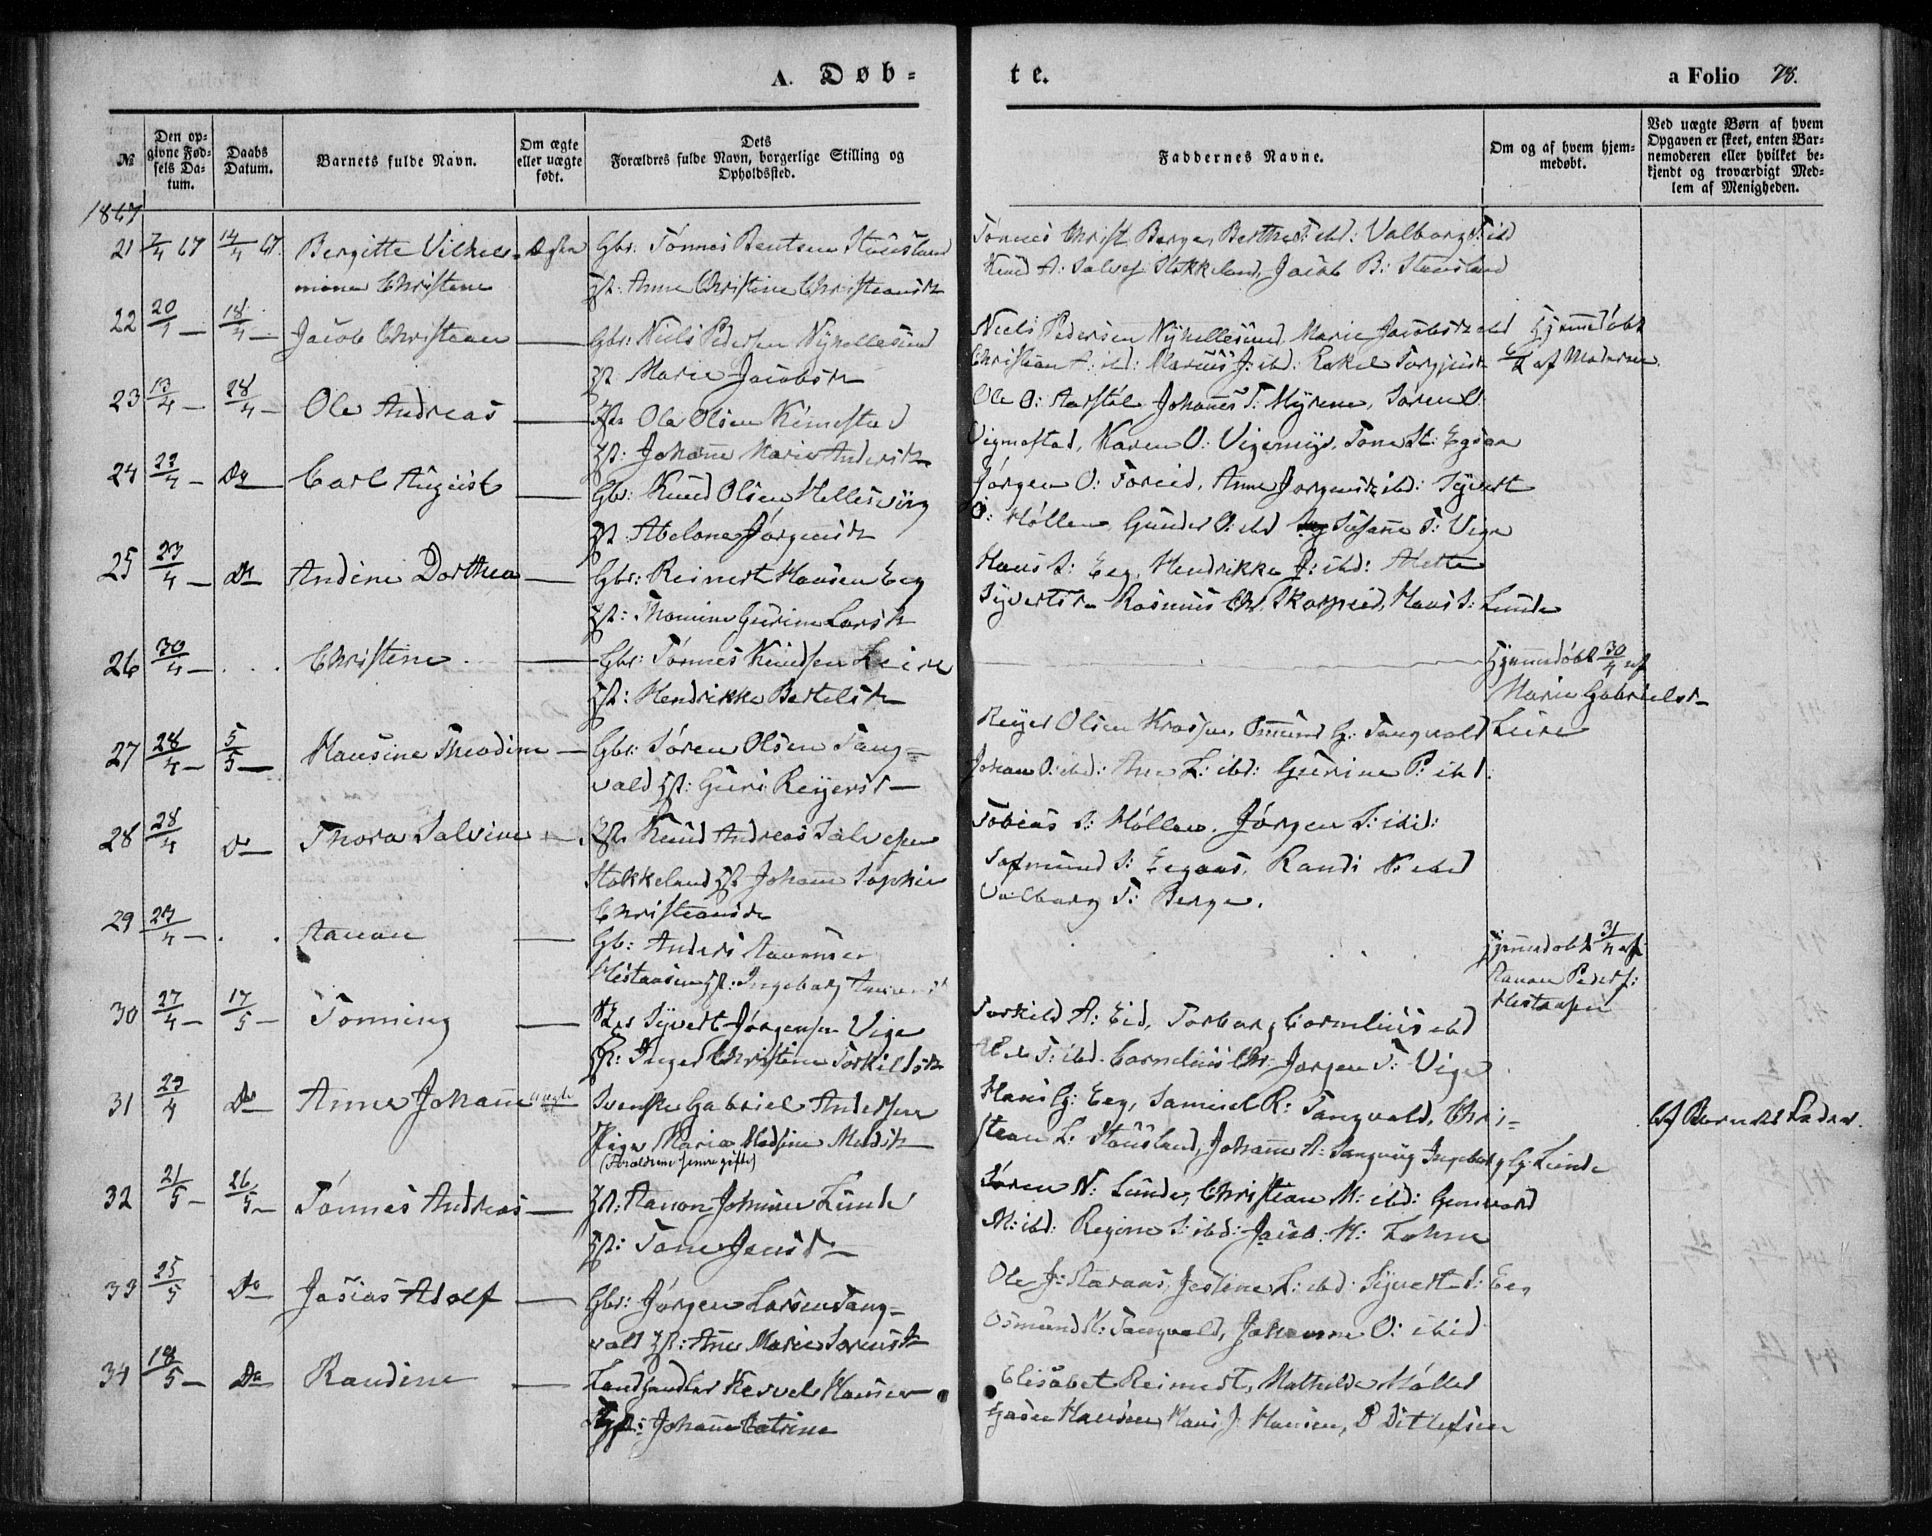 A. Døb=
te.
a Folio 78.
№
Den opgivne Fødsels Datum.
Daabs Datum.
Barnets fulde Navn.
Om ægte eller uægte født.
Dets Forældres fulde Navn, borgerlige Stilling og Opholdssted.
Faddernes Navne.
Om og af hvem hjemmedøbt.
Ved uægte Børn af hvem Opgaven er skeet, enten Barnemoderen eller hvilket bekjendt og troværdigt Medlem af Menigheden.
1867
21 7/4 67 14/4 67 Bergitte Vilhel- Ægte Gbr: Tønnes Bentsen Stausland
mine Christine Hst: Anne Christine Christiansdr
Tønnes Christ. Berge, Berthe T: ibd: Valborg T: ibd
Knud A: Salves. Stokkeland, Jacob B: Stausland
22 20/1 — 18/4 — Jacob Christian — Gbr: Niels Pedersen Nyhellesund
Hst: Marie Jacobsdr
Niels Pedersen Nyhellesund, Marie Jacobsdr ibd Hjemmedøbt
Christian A: ibd: Marius J: ibd: Eskel Torgjus af Moderen.
23 13/4 — 28/4 — Ole Andreas — Ole Olsen Kimestad
Hst: Johanne Marie Andersdr
Ole O: Aarstøl Johannes T: Myrene, Søren O:
Vigmostad, Karen O: Vigemyr, Tone St: Egsaa
24 23/4 — Do — Carl August — Gbr: Knud Olsen Hellesvig
Hst: Abelone Jørgensdr
Jørgen O: Foreid, Anne Jørgensdr ibd: Syvert
O: Møllen Gunder O: ibd Susanne T: Vige
25 23/4 — Do Andine Dorthea — Gbr: Reinert Hansen Eeg
Hst: Thomine Gurine Larsdr
Hans S: Eeg, Hendrikke J: ibd: Mette
Syvertsdr Rasmus Chr. Skarpeid, Hans S: Lunde
26 30/4 — . . Christine — Gbr: Tønnes Knudsen Leire
Hst: Hendrikke Bertelsdr
Hjemmedøbt 30/4 af
Marie Gabrielsdr
Leire
27 28/4 — 5/5 — Hansine Theodine — Gbr: Søren Olsen Tang=
vald Hst: Guri Reijersdr
Reijer Olsen Krossen, Omund G: Tangvald
Johan O: ibd: Ane L: ibd: Gurine P: ibd:
28 28/4 Do — Thora Salvine — Knud Andreas Salvesen
Stokkeland Hst Johanne Sophie
Christiansdr
Tobias S: Møllen, Jørgen S: ibid:
S: Eegaas, Randi N: ibd
Valborg T: Berge.
29 27/4 — . . Aanon — Gb: Anders Aanonsen
Hestaasen Hst: Ingeborg
Hjemmedøbt 31/4 af
Aanon Peders:
Hestaasen
30 27/4 — 17/5 — Tønning — Syvert Jørgensen Vige
Hst: Inger Christine Torkildsdr
Torkild A: Eid, Torborg Cornelius ibd
T: ibd. Cornelius Chr: Jørgen T: Vige
31 23/4 Do Anne Johanne uægte Svenske Gabriel Andersen
Pige Maria Madsine Madsdr
(Forældrene senere gifte)
Hans G: Eeg, Samuel R: Tangvald, Chri-
stian L: Stausland, Johanne A: Langvig Ingeborg G: Lunde
af Barnets Fader.
32 21/5 — 26/5 — Tønnes Andreas — Hst: Aanon Johnsen Lunde
Hst: Tone Jensdr
Søren N: Lunde, Christian M: ibd: Gunvord
M: ibd: Regine S: ibd: Jacob H: Lohne
33 25/5 Do Josias Adolf — Gbr: Jørgen Larsen Tang-
vald Hst: Ane Marie Sørensdr
Ole J: Aaraas, Jestine L: ibd: Syvert S: Eeg
Osmund K: Tangvald, Johanne O: ibid
34 18/5 — Do Randine — Landhandler Kervel Hansen
Hst: Johanne Catrine
Elisabet Reinert, Mathilde Møller
Hansen, Hans J: Hansen, P Ditlefsen